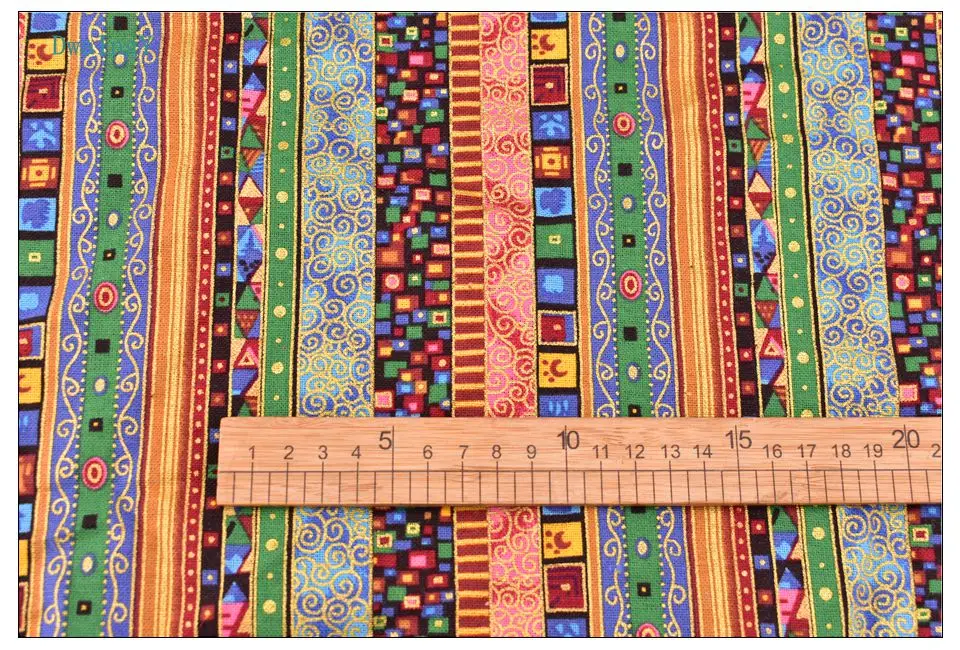 5 10 15 20
1 2 3 4 6 7 8 9 11 12 13 14 16 17 18 19 2